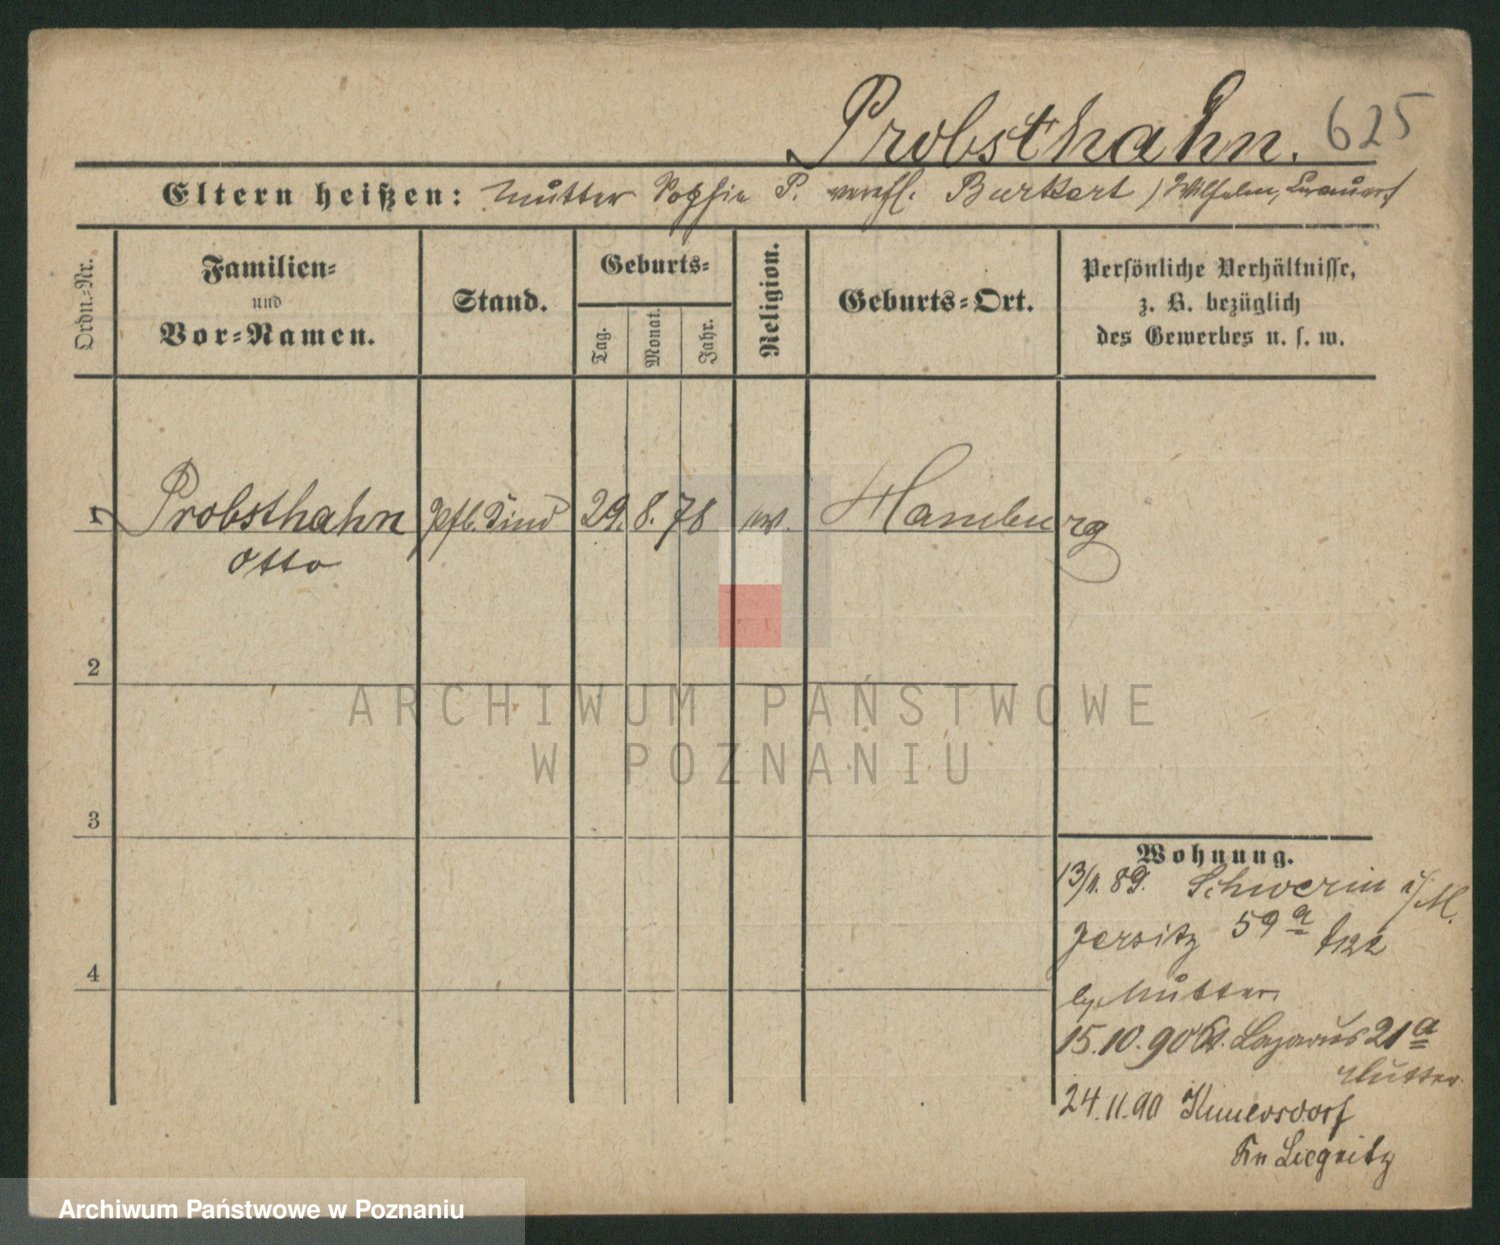 Probsthahn. 625
Eltern heißen: Mutter Sophie P. verehl. Burkert / Wilhelm,
Ordn.-Nr.
Familien-
und
Vor-Namen.
Stand.
Geburts-
Tag.
Monat.
Jahr.
Religion.
Geburts-Ort.
Persönliche Verhältnisse,
z. B. bezüglich
des Gewerbes u. s. w.
1 Probsthahn Pfl. Kind 29. 8. 78 ev. Hamburg
Otto
2
3
4
Wohnung.
13/11. 89. Schwerin i/M.
Jersitz 59 a
Mutter
15.10.90 St. Lazarus 21 a
Mutter
24.11.90 Kunersdorf
Kr Liegnitz
ARCHIWUM PAŃSTWOWE
W POZNANIU
Archiwum Państwowe w Poznaniu